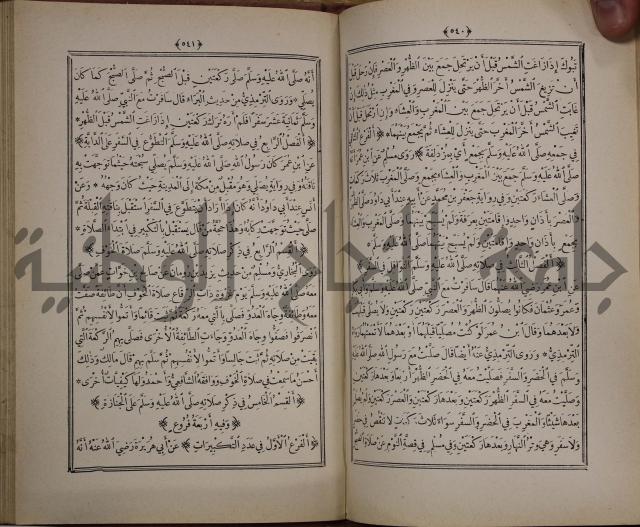 ﴿٥٤٠﴾
تبوك إذا زاغت الشمس قبل أن يرتحل جمع بين الظهر والعصر فإن رحل قبل
أن تزيغ الشمس أخر الظهر حتى ينزل للعصر وفي المغرب مثل ذلك إن
غابت الشمس قبل أن يرتحل جمع بين المغرب والعشاء وإن ارتحل قبل أن
تغيب الشمس أخر المغرب حتى ينزل للعشاء ثم يجمع بينهما ﴿الفرع الثاني
في جمعه صلى الله عليه وسلم بجمع أي بمزدلفة﴾ روى مسلم عن ابن عمر أنه
صلى الله عليه وسلم جمع بين المغرب والعشاء بجمع وصلى المغرب ثلاث ركعات
وصلى العشاء ركعتين وفي رواية جعفر بن محمد عن أبيه عند أبي داود صلى الظهر
والعصر بأذان واحد وإقامتين بعرفة ولم يسبح بينهما وصلى المغرب والعشاء
بجمع بأذان واحد وإقامتين ولم يسبح بينهما صلى الله عليه وسلم
﴿الفصل الثالث في صلاته صلى الله عليه وسلم النوافل في السفر﴾
عن ابن عمر رضي الله عنهما قال سافرت مع النبي صلى الله عليه وسلم وأبي بكر
وعمر وعثمان فكانوا يصلون الظهر والعصر ركعتين ركعتين ولا يصلى قبلها
ولا بعدها وقال ابن عمر لو كنت مصليا قبلها أو بعدها لأتممتها رواه
الترمذي * وروى الترمذي عنه أيضا قال صليت مع رسول الله صلى الله عليه
وسلم في الحضر والسفر فصليت معه في الحضر الظهر أربعا وبعدها ركعتين
وصليت معه في السفر الظهر ركعتين وبعدها ركعتين والعصر ركعتين ولم يصل
بعدها شيئا والمغرب في الحضر والسفر سواء ثلاث ركعات لا تنقص في حضر
ولا سفر وهي وتر النهار وبعدها ركعتين وفي مسلم في قصة النوم عن صلاة الصبح
﴿٥٤١﴾
أنه صلى الله عليه وسلم صلى ركعتين قبل الصبح ثم صلى الصبح كما كان
يصلي * وروى الترمذي من حديث البراء قال سافرت مع النبي صلى الله عليه
وسلم ثمانية عشر سفرا فلم أره ترك ركعتين إذا زاغت الشمس قبل الظهر *
﴿الفصل الرابع في صلاته صلى الله عليه وسلم التطوع في السفر على الدابة﴾
عن ابن عمر كان رسول الله صلى الله عليه وسلم يصلي سبحته حيثما توجهت به
ناقته وفي رواية يصلي وهو مقبل من مكة إلى المدينة حيث كان وجهه * وعن
أنس عند أبي داود أنه كان إذا أراد أن يتطوع في السفر استقبل بناقته القبلة ثم
صلى حيث توجهت ركابه وهذا حجة لمن قال يستقبل بالتكبير في ابتداء الصلاة *
﴿القسم الرابع في ذكر صلاته صلى الله عليه وسلم الخوف﴾
روى البخاري ومسلم من حديث يزيد بن رومان عن صالح بن خوات عمن صلى
معه صلى الله عليه وسلم يوم غزوة ذات الرقاع صلاة الخوف أن طائفة صفت
معه وطائفة وجاه العدو فصلى بالتي معه ركعة ثم ثبت قائما وأتموا لأنفسهم ثم
انصرفوا فصفوا وجاه العدو وجاءت الطائفة الأخرى فصلى بهم الركعة التي
بقيت من صلاته ثم ثبت جالسا وأتموا لأنفسهم ثم سلم بهم قال مالك وذلك
أحسن ما سمعت في صلاة الخوف ووافقه الشافعي وأحمد ولها كيفيات أخرى *
﴿القسم الخامس في ذكر صلاته صلى الله عليه وسلم على الجنازة﴾
﴿وفيه أربعة فروع﴾
﴿الفرع الأول في عدد التكبيرات﴾ عن أبي هريرة رضي الله عنه أنه
جامعة النجاح الوطنية